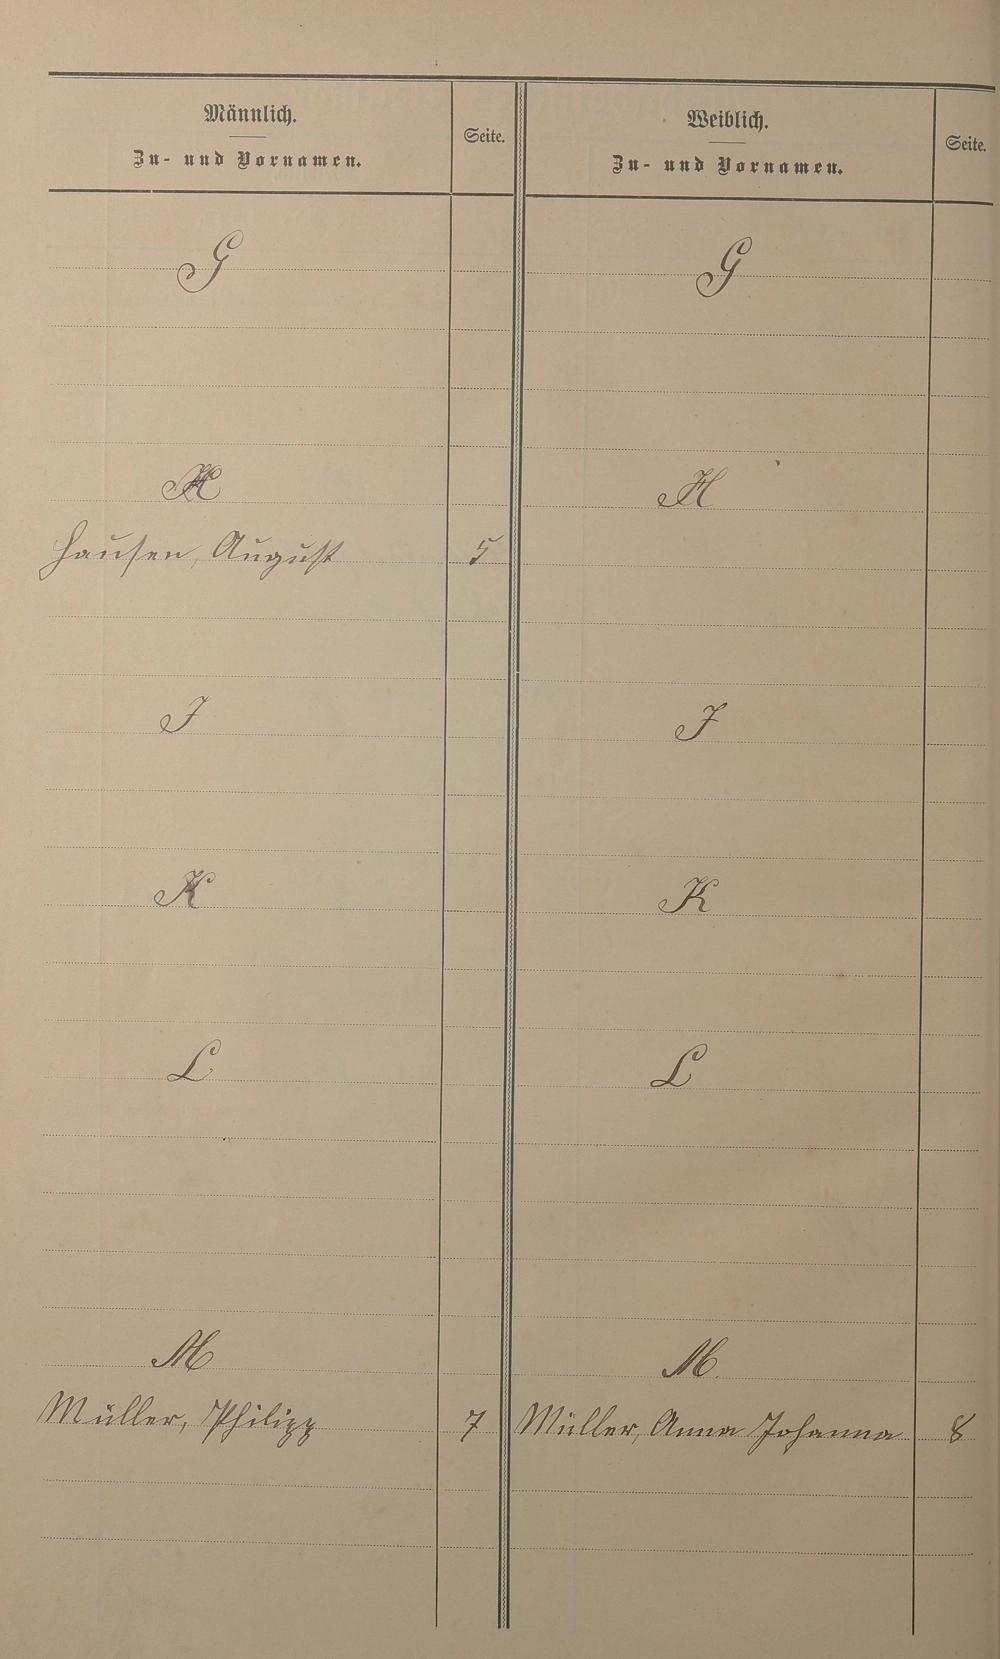 Männlich.
Zu- und Vornamen.
Seite.
Weiblich.
Zu- und Vornamen.
Seite.
G
G
H
H
Hausen, August 5
I
I
K
K
L
L
M
M.
Müller, Philipp 7 Müller, Anna Johanna 8